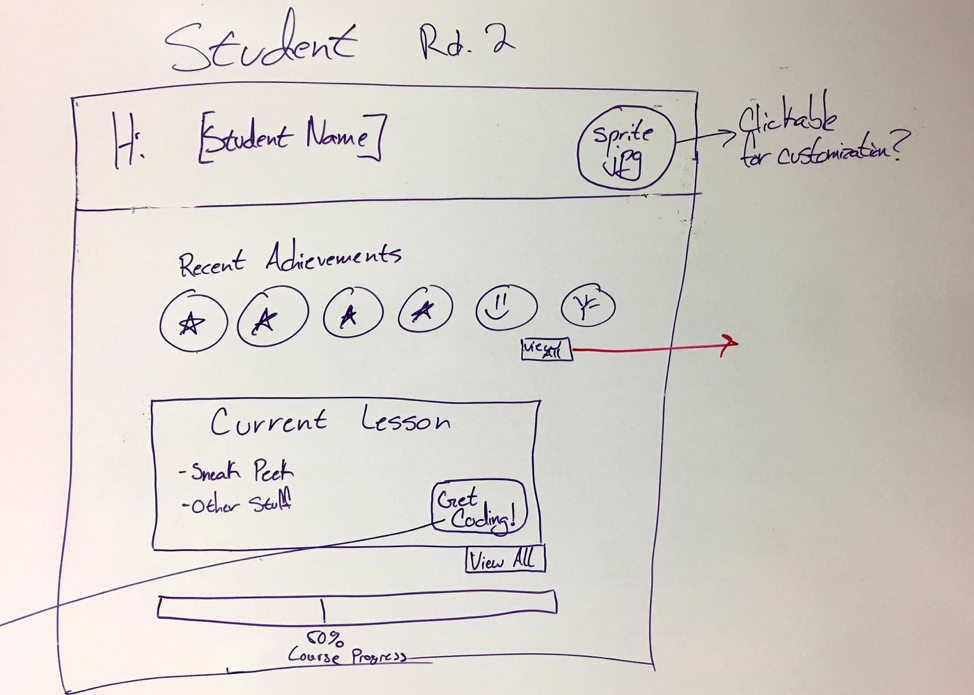 Student Rd. 2
Hi [Student Name]
sprite
jpg
Clickable
for customization?
Recent Achievements
View All
Current Lesson
- Sneak Peek
- Other Stuff
Get
Coding!
View All
50%
Course Progress